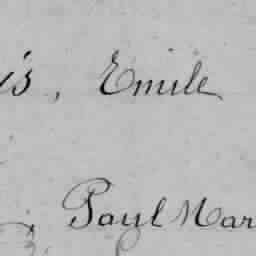 is, Emile
, Paul Mar